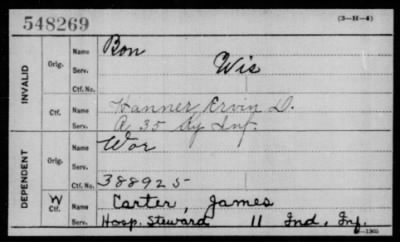 548269
(3-H-4)
INVALID
Orig.
Name Bon
Serv. Wis
Ctf. No.
Ctf.
Name Hanner, Ervin D.
Serv. A 35 Ky Inf.
DEPENDENT
Orig.
Name Wor
Serv.
Ctf. No. 388925
W
Ctf.
Name Carter, James
Serv. Hosp. Steward 11 Ind. Inf.